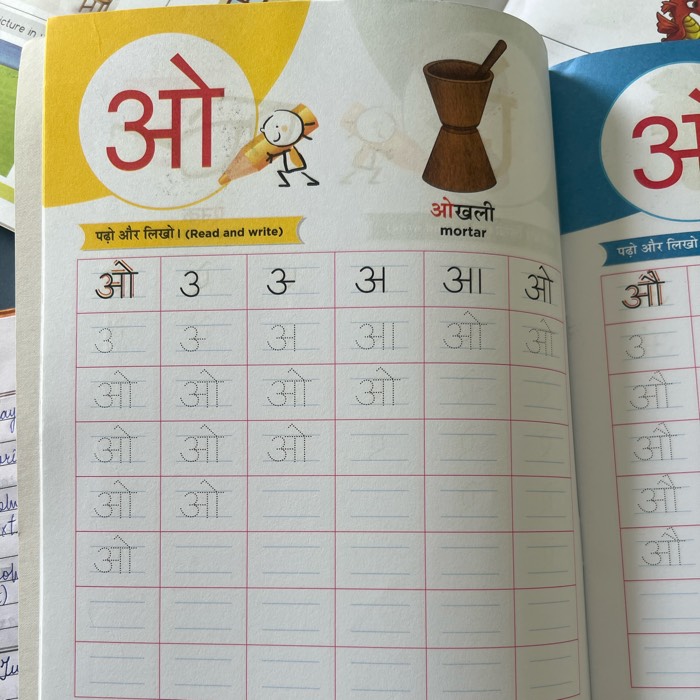 cture in
ओ
ओखली
mortar
पढ़ो और लिखो। (Read and write)
ओ उ उ- अ आ ओ
उ उ- अ आ ओ ओ
ओ ओ ओ ओ
ओ ओ ओ
ओ ओ
ओ
पढ़ो और लिखो
औ
उ
औ
औ
औ
औ